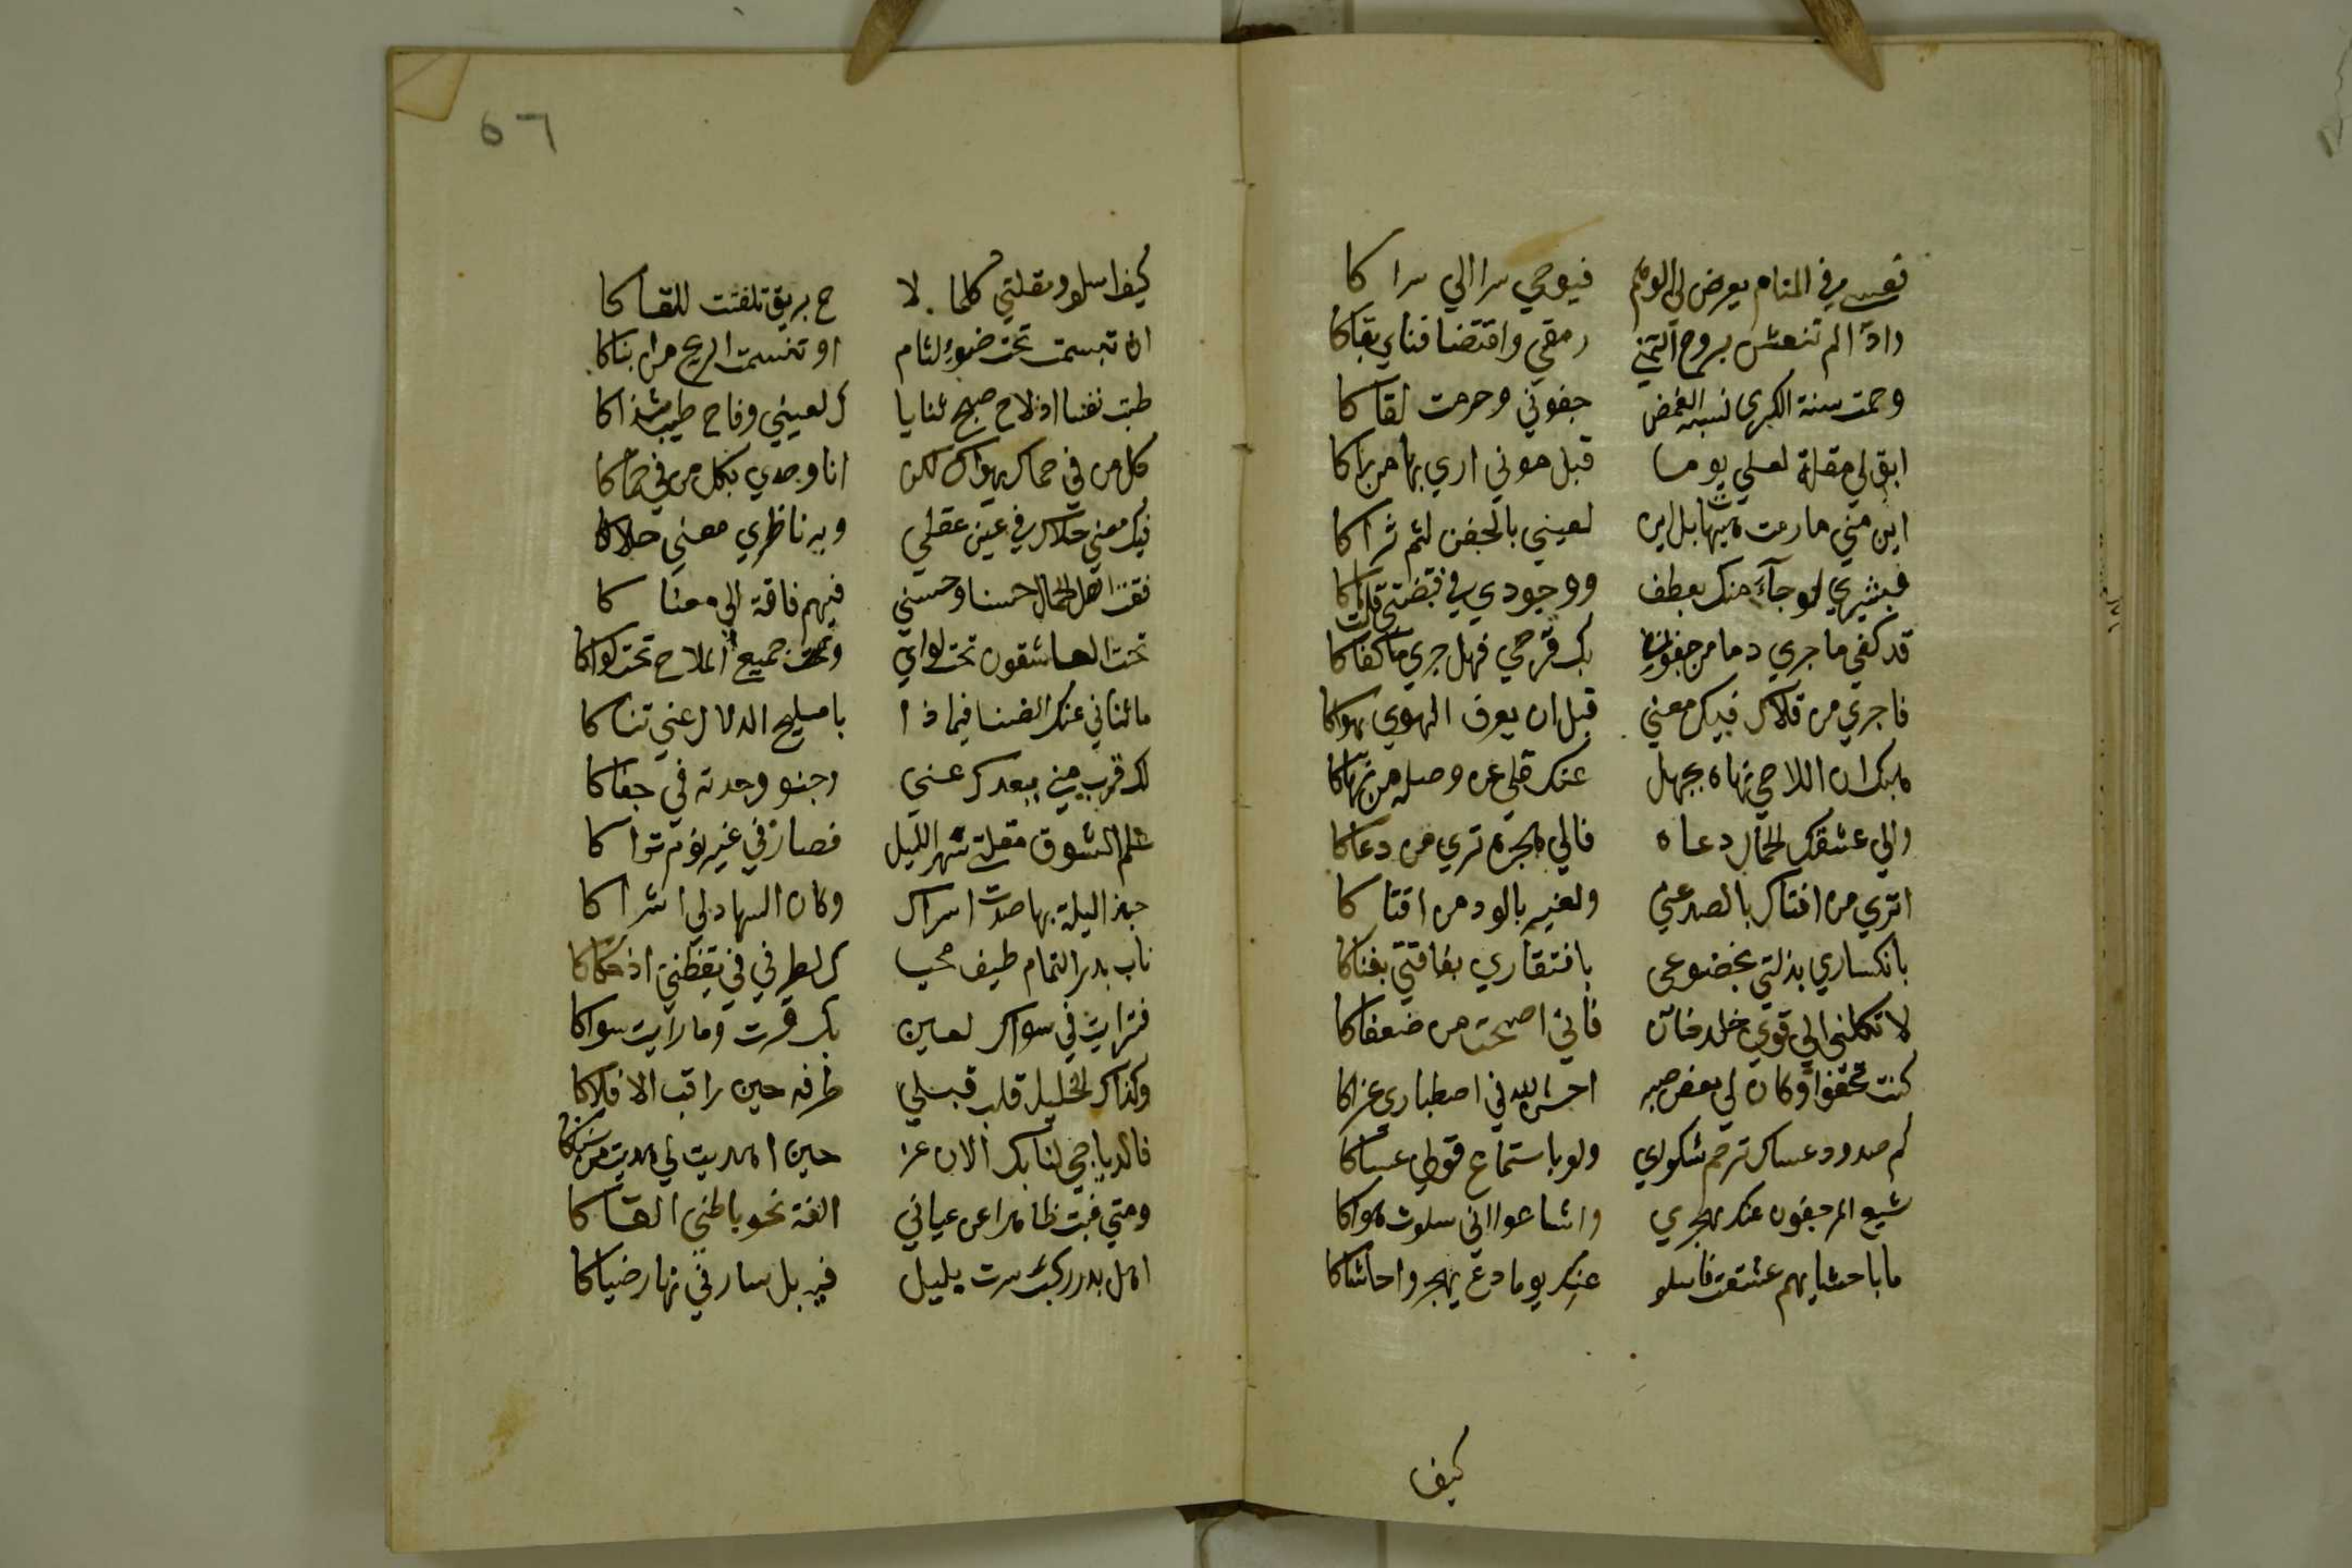 فعسى في المنام يعرض لي الوهم فيوحي سرا الي سراكا
واذا لم تنعش بروح التمني رمقي واقتضا فناي بقاكا
وحمت سنة الكرى نسبة الغمض جفوني وحرمت لقاكا
ابق لي مقلة لعلي يوما قبل موتي اري بها من راكا
اين مني مارمت هيهات بل اين لعيني بالجفن لثم ثراكا
فبشيري لو جآء منك بعطف ووجودي في قبضتي قلت هاكا
قد كفي ما جري دما من جفون بك قرحي فهل جري ما كفاكا
فاجري من قلاك فيك معني قبل ان يعرف الهوي يهواكا
هبك ان اللاحي نهاه بجهل عنك قلي عن وصله من نهاكا
والي عشقك الجمال دعاه فالي هجره تري من دعاكا
اتري من افتاك بالصد عني ولغيري بالود من افتاكا
بانكساري بذلتي بخضوعي بافتقاري بفاقتي بغناكا
لا تكلني الي قوي خلد خان فاني اصبحت من ضعفاكا
كنت تجفوا وكان لي بعض صبر احسن الله في اصطباري عزاكا
كم صدود عساك ترحم شكواي ولو باستماع قولي عساكا
شيع المرجفون عنك بهجري واشاعوا اني سلوت هواكا
ما باحشايهم عشقت فاسلو عنك يوما دع يهجروا حاشاكا
كيف
٥٦
كيف اسلو ومقلتي كلما لا ح بريق تلفتت للقاكا
ان تبسمت تحت ضوء لثام او تنسمت الريح من انباكا
طبت نفسا اذ لاح صبح ثنايا ك لعيني وفاح طيب شذاكا
كل من في حماك يهواك لكن انا وحدي بكل من في حماكا
فيك معني حلاك في عين عقلي وبه ناظري معني حلاكا
فقت اهل الجمال حسنا وحسني فبهم فاقة الي معناكا
تحشر العاشقون تحت لواي وجميع الملاح تحت لواكا
ما ثناني عنك الضنا فبماذا يا مليح الدلال عني ثناكا
لك قرب مني ببعدك عني وحنو وجدته في جفاكا
علم الشوق مقلتي سهر الليل فصارت في غير نوم تراكا
حبذا ليلة بها صدت اسراك وكان السهاد لي اشراكا
ناب بدر التمام طيف محيا ك لطرفي في يقظتي اذ حكاكا
فترايت في سواك لعين بك قرت وما رايت سواكا
وكذاك الخليل قلب قبلي طرفه حين راقب الافلاكا
فالدياجي لنا بك الان غر حين اهديت لي هدي من سناكا
ومتي غبت ظاهرا عن عياني الفه نحو باطني القاكا
اهل بدر ركب سرت بليل فيه بل سار في نهار ضياكا